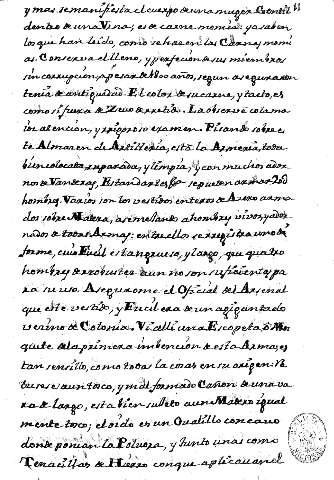 y mas se manifiesta el cuerpo de una muger Gentil
dentro de una Vina; es de carne momia: ya saben
lo que han leido, como se hacen las Carnes momi
as. Conserva el lleno, y perfecion de sus miembros
sin corrupcion, a pesar de 1800 años, segun aseguraron
tenia de antiguedad. El color de su carne, y tacto, es
como si fuera de Zevo derretido. La observé con la ma
ior atencion, y riguroso examen. Pisando sobre es
te Almacen de Artilleria, está la Armeria, toda
bien colocada, reparada, y limpia, y con muchos ador
nos de Vanderas, Estandartes &c. se pueden armar
hombres. Varios son los vestidos enteros de Azero arma
dos sobre Madera, asimelando a hombres vivos, y ador
nados de todas Armas: entre ellos se registra uno dis
forme, cuio Fucil es tan grueso, y largo, que quatro
hombres de robustez aun no son suficientes pa
ra su uso. Aseguróme el Oficial del Arsenal
que este vestido, y Fucil era de un agigantado
vecino de Colonia. Vi alli una Escopeta, ó Mos
quete de la primera imbencion de esta Arma; es
tan sencillo, como todas las cosas en su origen. Re
ducese a un tosco, y mal formado Cañon de una va
ra de largo, esta bien sujeto a un Madero igual
mente tosco; el oido es un Ovalillo concavo
donde ponian la Polvora, y junto unas como
Tenacillas de Hierro con que aplicavan el